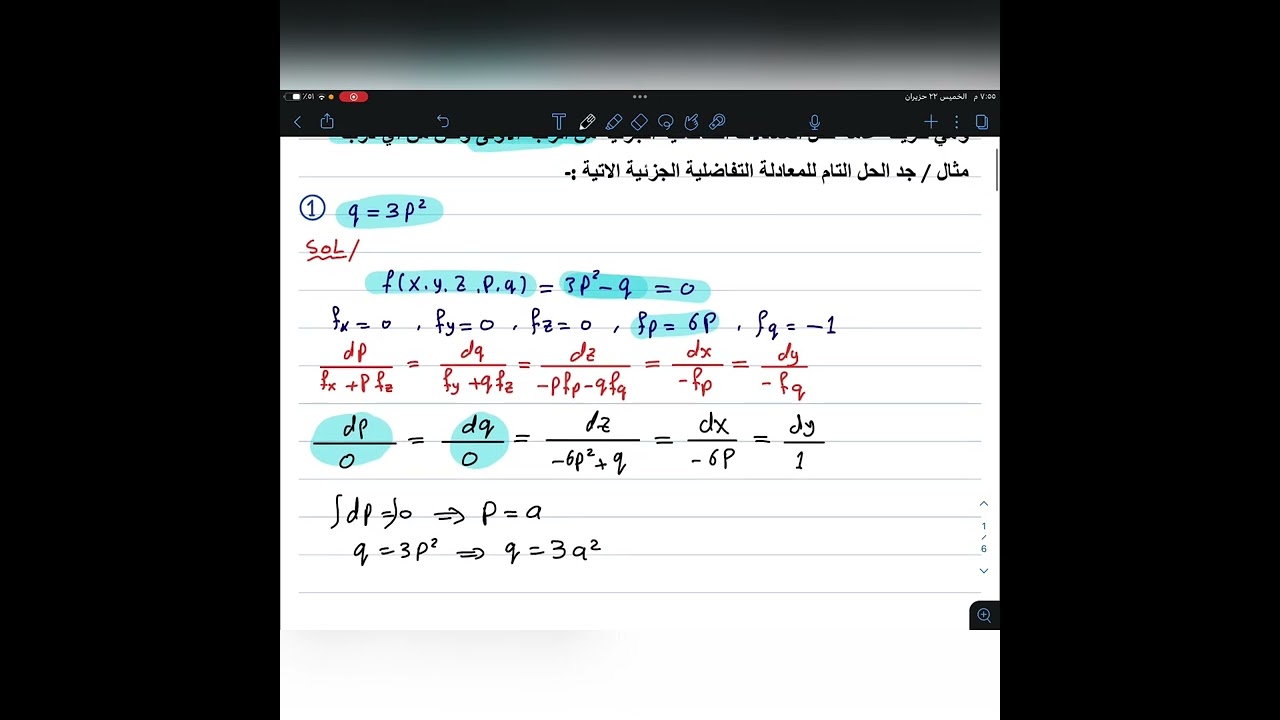 ٧:٥٥ م الخميس ٢٢ حزيران ٥١٪
مثال / جد الحل التام للمعادلة التفاضلية الجزئية الاتية :-
① q = 3p²
SOL/
f(x.y.z.p.q) = 3p² - q = 0
fx = 0 , fy = 0 , fz = 0 , fp = 6p , fq = -1
dp/(fx + p fz) = dq/(fy + q fz) = dz/(-pfp - qfq) = dx/(-fp) = dy/(-fq)
dp/0 = dq/0 = dz/(-6p² + q) = dx/(-6p) = dy/1
∫dp = ∫0 ⇒ p = a
q = 3p² ⇒ q = 3a²
1
/
6